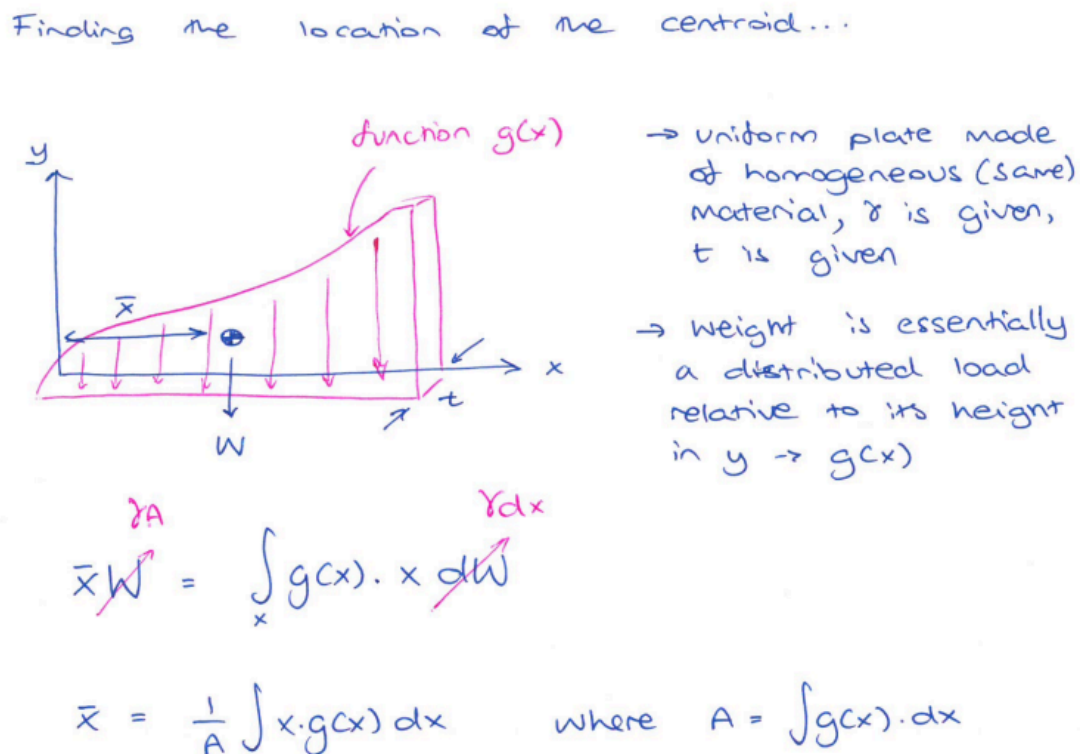 Finding the location of the centroid...
function g(x)
y
x̄
x
t
W
→ uniform plate made
of homogeneous (same)
material, γ is given,
t is given
→ weight is essentially
a distributed load
relative to its height
in y → g(x)
γA γdx
x̄W = ∫ₓ g(x). x dW
x̄ = 1/A ∫ x.g(x) dx where A = ∫g(x).dx